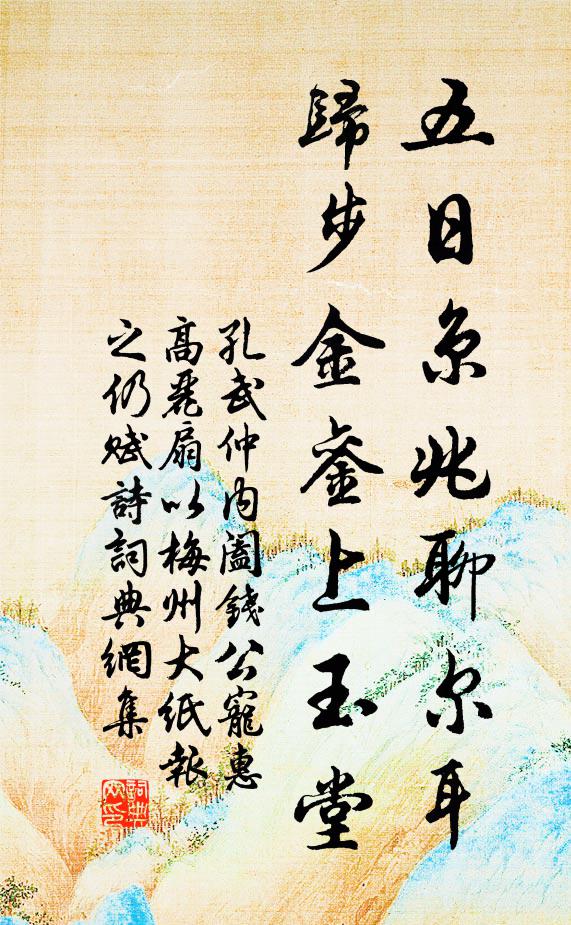 五日京兆聊尔耳
歸步金銮上玉堂
孔武仲内阁錢公寵惠
高丽扇以梅州大纸報
之仍赋詩詞典網集
詞典